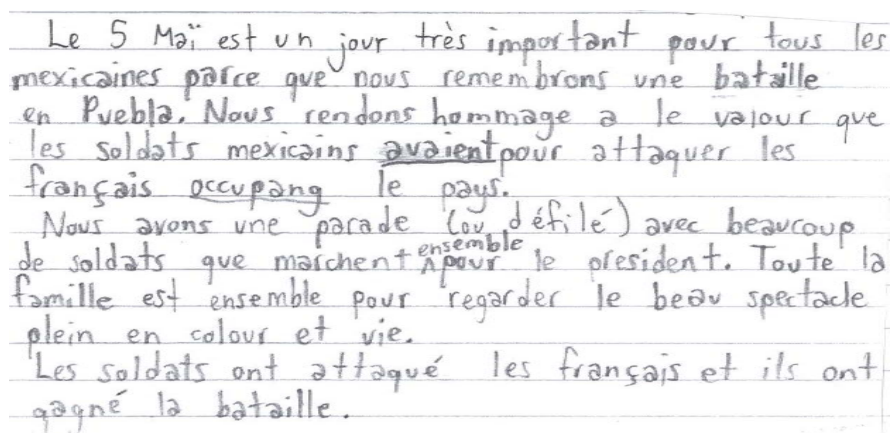 Le 5 Maï est un jour très important pour tous les
mexicaines parce que nous remembrons une bataille
en Puebla. Nous rendons hommage a le valour que
les soldats mexicains avaient pour attaquer les
français occupang le pays.
Nous avons une parade (ou défilé) avec beaucoup
de soldats que marchent ensemble pour le president. Toute la
famille est ensemble pour regarder le beau spectacle
plein en colour et vie.
Les soldats ont attaqué les français et ils ont
gagné la bataille.